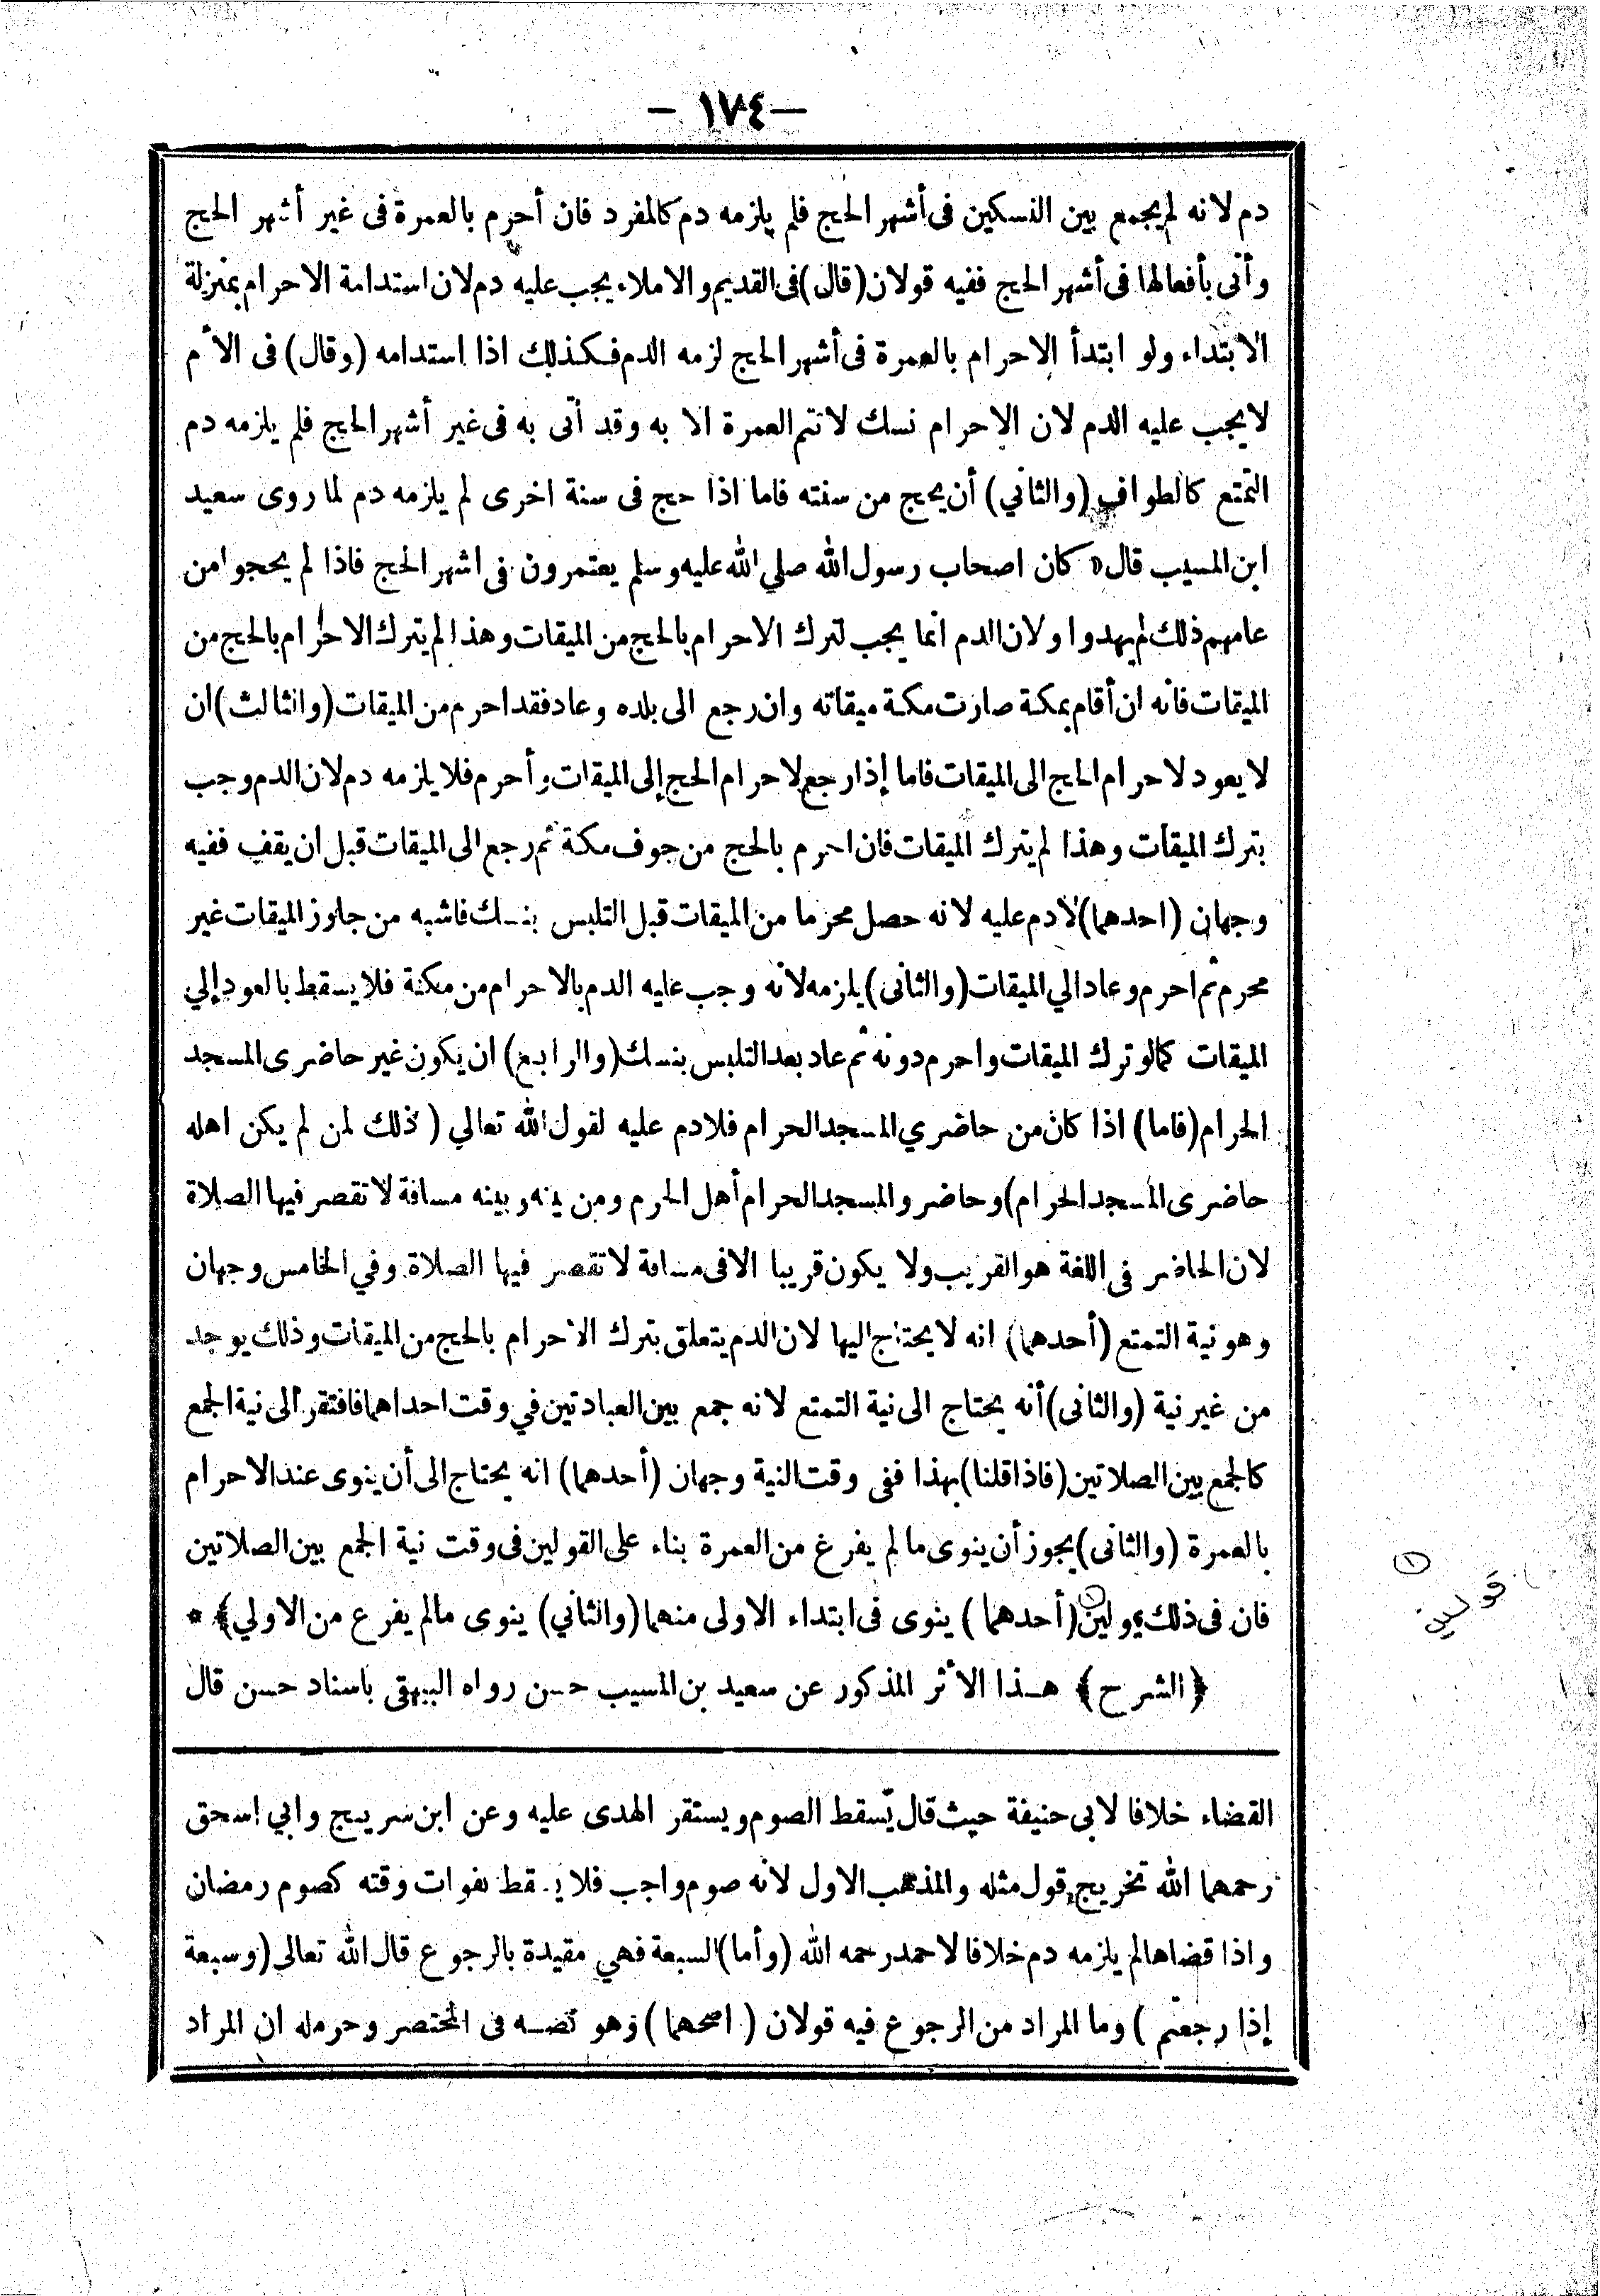 — ١٧٤ —
دم لانه لم يجمع بين النسكين فى أشهر الحج فلم يلزمه دم كالمفرد فان أحرم بالعمرة فى غير أشهر الحج
وأتى بأفعالها فى أشهر الحج ففيه قولان (قال) فى القديم والاملاء يجب عليه دم لان استدامة الاحرام بمنزلة
الابتداء ولو ابتدأ الاحرام بالعمرة فى أشهر الحج لزمه الدم فكذلك اذا استدامه (وقال) فى الأم
لا يجب عليه الدم لان الاحرام نسك لا تتم العمرة الا به وقد أتى به فى غير أشهر الحج فلم يلزمه دم
التمتع كالطواف (والثاني) أن يحج من سنته فاما اذا حج فى سنة اخرى لم يلزمه دم لما روى سعيد
ابن المسيب قال « كان اصحاب رسول الله صلي الله عليه وسلم يعتمرون فى اشهر الحج فاذا لم يحجوا من
عامهم ذلك لم يهدوا ولان الدم انما يجب لترك الاحرام بالحج من الميقات وهذا لم يترك الاحرام بالحج من
الميقات فانه ان أقام بمكة صارت مكة ميقاته وان رجع الى بلده وعاد فقد احرم من الميقات (والثالث) ان
لا يعود لاحرام الحج الى الميقات فاما إذا رجع لاحرام الحج إلى الميقات وأحرم فلا يلزمه دم لان الدم وجب
بترك الميقات وهذا لم يترك الميقات فان احرم بالحج من جوف مكة ثم رجع الى الميقات قبل ان يقف ففيه
وجهان (احدهما) لا دم عليه لانه حصل محرما من الميقات قبل التلبس بنسك فاشبه من جاوز الميقات غير
محرم ثم احرم وعاد الي الميقات (والثانى) يلزمه لانه وجب عليه الدم بالاحرام من مكة فلا يسقط بالعود إلي
الميقات كما لو ترك الميقات واحرم دونه ثم عاد بعد التلبس بنسك (والرابع) ان يكون غير حاضرى المسجد
الحرام (فاما) اذا كان من حاضري المسجد الحرام فلا دم عليه لقول الله تعالي ( ذلك لمن لم يكن اهله
حاضرى المسجد الحرام) وحاضرو المسجد الحرام أهل الحرم ومن بينه وبينه مسافة لا تقصر فيها الصلاة
لان الحاضر فى اللغة هو القريب ولا يكون قريبا الا فى مسافة لا تقصر فيها الصلاة وفي الخامس وجهان
وهو نية التمتع (أحدهما) انه لا يحتاج اليها لان الدم يتعلق بترك الاحرام بالحج من الميقات وذلك يوجد
من غير نية (والثانى) أنه يحتاج الى نية التمتع لانه جمع بين العبادتين في وقت احداهما فافتقر الى نية الجمع
كالجمع بين الصلاتين (فاذا قلنا) بهذا ففى وقت النية وجهان (أحدهما) انه يحتاج الى أن ينوى عند الاحرام
بالعمرة (والثانى) يجوز أن ينوى مالم يفرغ من العمرة بناء على القولين فى وقت نية الجمع بين الصلاتين
فان فى ذلك قولين (أحدهما) ينوى فى ابتداء الاولى منهما (والثاني) ينوى مالم يفرغ من الاولي﴾ *
(١)
قولين
﴿الشرح﴾ هذا الأثر المذكور عن سعيد بن المسيب حسن رواه البيهقى باسناد حسن قال
القضاء خلافا لابى حنيفة حيث قال يسقط الصوم ويستقر الهدى عليه وعن ابن سريج وابي اسحق
رحمهما الله تخريج قول مثله والمذهب الاول لانه صوم واجب فلا يسقط بفوات وقته كصوم رمضان
واذا قضاها لم يلزمه دم خلافا لاحمد رحمه الله (وأما) السبعة فهي مقيدة بالرجوع قال الله تعالى (وسبعة
إذا رجعتم ) وما المراد من الرجوع فيه قولان ( اصحهما ) وهو نصه فى المختصر وحرمله ان المراد